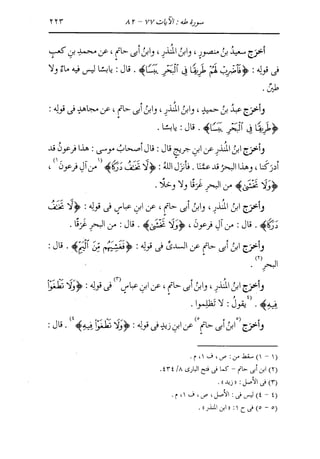 سورة طه : الآيات ٧٧ - ٨٢ ٢٢٣
أخرَج سعيدُ بنُ منصورٍ ، وابنُ المنذرِ ، وابنُ أبى حاتمٍ ، عن محمدِ بنِ كعبٍ
فى قولِه : ﴿فَاضْرِبْ لَهُمْ طَرِيقًا فِى الْبَحْرِ يَبَسًا﴾ . قال : يابسًا ليس فيه ماءٌ ولا
طينٌ .
وأخرَج عبدُ بنُ حميدٍ ، وابنُ المنذرِ ، وابنُ أبى حاتمٍ ، عن مجاهدٍ فى قولِه :
﴿طَرِيقًا فِى الْبَحْرِ يَبَسًا﴾ . قال : يابسًا .
وأخرَج ابنُ المنذرِ عن ابنِ جريجٍ قال : قال أصحابُ موسى : هذا فرعونُ قد
أدرَكنا ، وهذا البحرُ قد غمَّنا . فأنزَل اللهُ : ﴿لَا تَخَٰفُ دَرَكًا﴾ (١من آلِ فرعونَ١) ،
﴿وَلَا تَخْشَىٰ﴾ من البحرِ غرَقًا ولا وحَلًا .
وأخرَج ابنُ المنذرِ ، وابنُ أبى حاتمٍ ، عن ابنِ عباسٍ فى قولِه : ﴿لَا تَخَٰفُ
دَرَكًا﴾ . قال : من آلِ فرعونَ ، ﴿وَلَا تَخْشَىٰ﴾ . قال : من البحرِ غرَقًا .
وأخرَج ابنُ أبى حاتمٍ عن السدىِّ فى قولِه : ﴿فَغَشِيَهُم مِّنَ الْيَمِّ﴾ . قال :
البحرِ(٢) .
وأخرَج ابنُ المنذرِ ، وابنُ أبى حاتمٍ ، عن ابنِ عباسٍ(٣) فى قولِه : ﴿وَلَا تَطْغَوْا
فِيهِ﴾ . (٤يقولُ : لا تَظلِموا .
وأخرَج (٥ابنُ أبى حاتمٍ٥) عن ابنِ زيدٍ فى قولِه : ﴿وَلَا تَطْغَوْا فِيهِ﴾٤) . قال :
(١ - ١) سقط من : ص ، ف ١، م .
(٢) ابن أبى حاتم - كما فى فتح البارى ٨/ ٤٣٤.
(٣) فى الأصل : « زيد » .
(٤ - ٤) ليس فى : الأصل ، ص ، ف ١، م .
(٥ - ٥) فى ح ١: « ابن المنذر » .